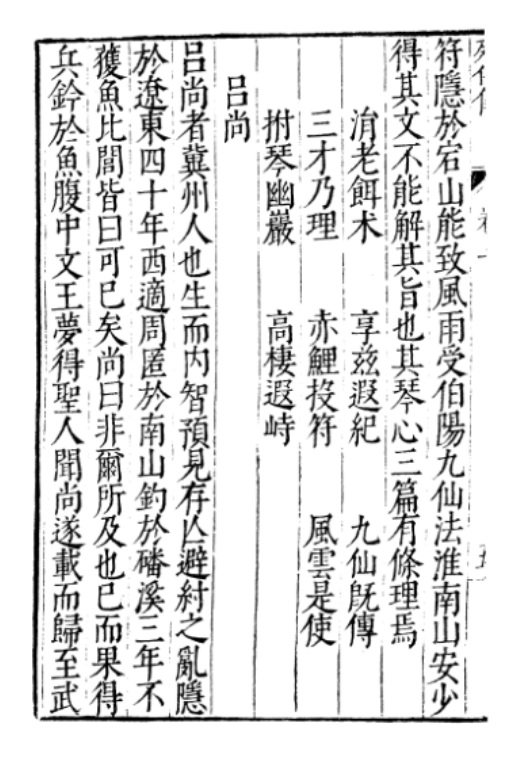 符隱於宕山能致風雨受伯陽九仙法淮南山安少
得其文不能解其旨也其琴心三篇有條理焉
涓老餌术　享兹遐紀　九仙旣傳
三才乃理　赤鯉投符　風雲是使
拊琴幽巖　高棲遐峙
呂尚
呂尚者冀州人也生而内智預見存亾避紂之亂隱
於遼東四十年西適周匿於南山釣於磻溪三年不
獲魚比閭皆曰可已矣尚曰非爾所及也已而果得
兵鈐於魚腹中文王夢得聖人聞尚遂載而歸至武